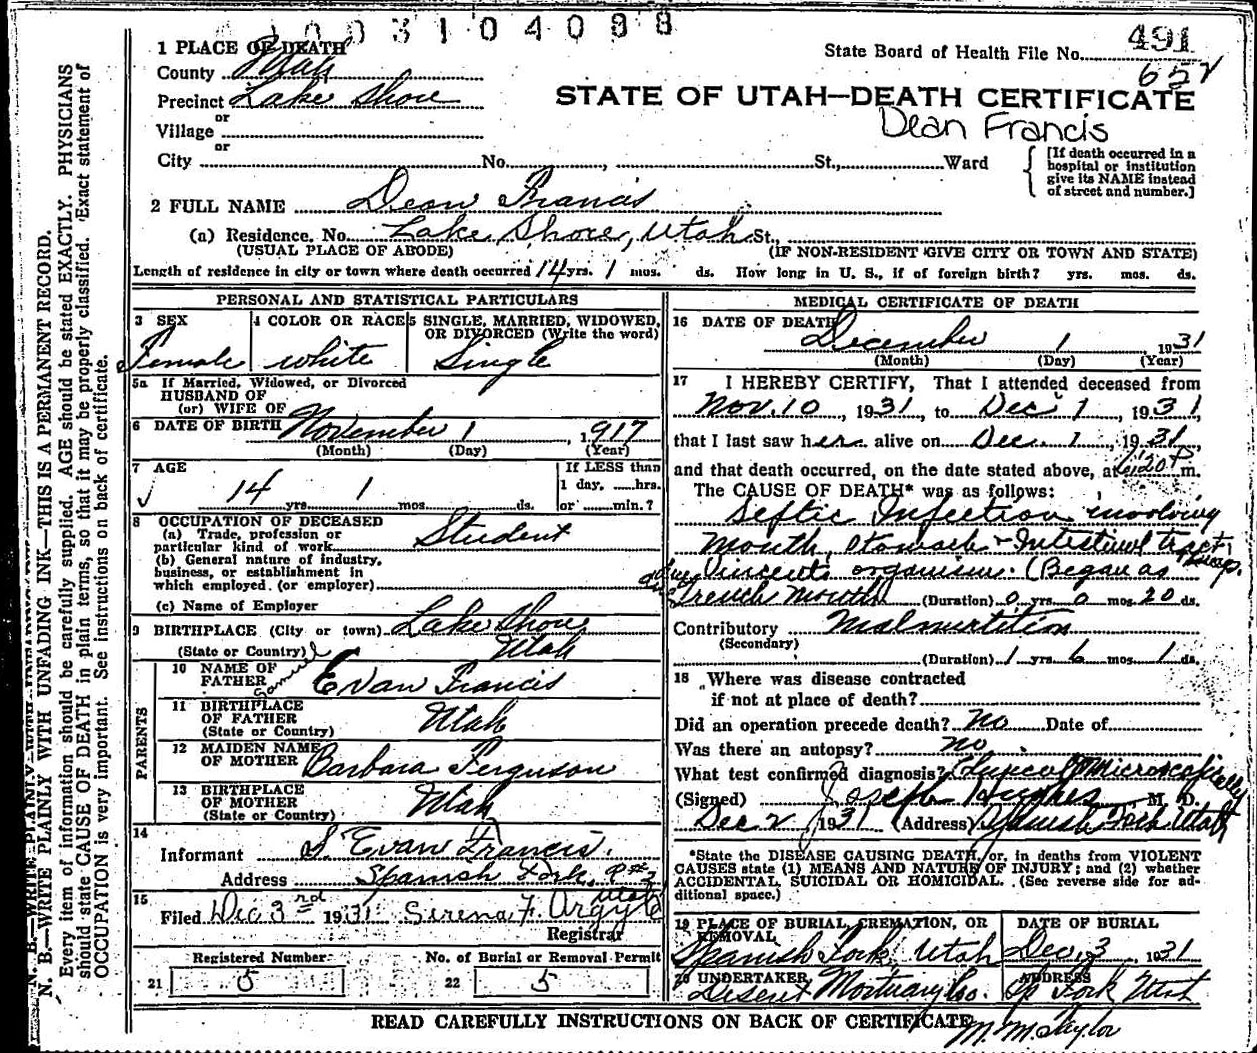 1003104088
State Board of Health File No. 491
652
1 PLACE OF DEATH
County Utah
Precinct Lake Shore
or
Village
or
City No. , St., Ward
STATE OF UTAH—DEATH CERTIFICATE
Dean Francis
[If death occurred in a hospital or institution give its NAME instead of street and number.]
2 FULL NAME Dean Francis
(a) Residence. No. Lake Shore, Utah St.,
(USUAL PLACE OF ABODE) (IF NON-RESIDENT GIVE CITY OR TOWN AND STATE)
Length of residence in city or town where death occurred 14 yrs. 1 mos. ds. How long in U. S., if of foreign birth? yrs. mos. ds.
PERSONAL AND STATISTICAL PARTICULARS
3 SEX 4 COLOR OR RACE 5 SINGLE, MARRIED, WIDOWED,
OR DIVORCED (Write the word)
Female white Single
5a If Married, Widowed, or Divorced
HUSBAND OF
(or) WIFE OF
6 DATE OF BIRTH November 1, 1917
(Month) (Day) (Year)
7 AGE If LESS than
1 day, hrs.
14 yrs. 1 mos. ds. or min.?
8 OCCUPATION OF DECEASED
(a) Trade, profession or
particular kind of work Student
(b) General nature of industry,
business, or establishment in
which employed (or employer)
(c) Name of Employer
9 BIRTHPLACE (City or town) Lake Shore
(State or Country) Utah
PARENTS
10 NAME OF
FATHER Evan Francis
11 BIRTHPLACE
OF FATHER Utah
(State or Country)
12 MAIDEN NAME
OF MOTHER Barbara Ferguson
13 BIRTHPLACE
OF MOTHER Utah
(State or Country)
14
Informant S. Evan Francis.
Address Spanish Fork, Utah
15
Filed Dec 3rd 1931 Serena F. Argyle
Registrar
Registered Number No. of Burial or Removal Permit
21 5 22 5
MEDICAL CERTIFICATE OF DEATH
16 DATE OF DEATH December 1, 1931
(Month) (Day) (Year)
17 I HEREBY CERTIFY, That I attended deceased from
Nov. 10, 1931, to Dec 1, 1931,
that I last saw her alive on Dec. 1, 1931,
and that death occurred, on the date stated above, at 1:20 P m.
The CAUSE OF DEATH* was as follows:
Septic Infection involving
Mouth, Stomach & Intestinal tract;
Vincents organism. (Began as
Trench Mouth) (Duration) 0 yrs. 0 mos. 20 ds.
Contributory Malnurtition
(Secondary)
(Duration) 1 yrs 6 mos. 1 ds.
18 Where was disease contracted
if not at place of death?
Did an operation precede death? No Date of
Was there an autopsy? no
What test confirmed diagnosis? Clinical & Microscopically
(Signed) Joseph Hughes M. D.
Dec 2 1931 (Address) Spanish Fork Utah
*State the DISEASE CAUSING DEATH, or, in deaths from VIOLENT
CAUSES state (1) MEANS AND NATURE OF INJURY; and (2) whether
ACCIDENTAL, SUICIDAL OR HOMICIDAL. (See reverse side for ad-
ditional space.)
19 PLACE OF BURIAL, CREMATION, OR DATE OF BURIAL
REMOVAL
Spanish Fork, Utah Dec. 3 1931
20 UNDERTAKER ADDRESS
Deseret Mortuary Co. Sp Fork Utah
M. M. Taylor
READ CAREFULLY INSTRUCTIONS ON BACK OF CERTIFICATE
N. B.—WRITE PLAINLY WITH UNFADING INK—THIS IS A PERMANENT RECORD.
Every item of information should be carefully supplied. AGE should be stated EXACTLY. PHYSICIANS
should state CAUSE OF DEATH in plain terms, so that it may be properly classified. Exact statement of
OCCUPATION is very important. See instructions on back of certificate.